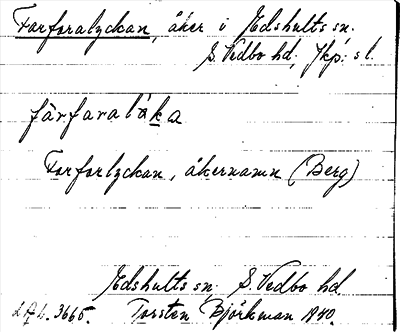 Farforalyckan, åker i Edshults sn.
S. Vedbo hd; Jkp: s l.
farfaralåka
Forforlyckan, åkernamn (Berg)
Edshults sn, S. Vedbo hd
Torsten Björkman 1940.